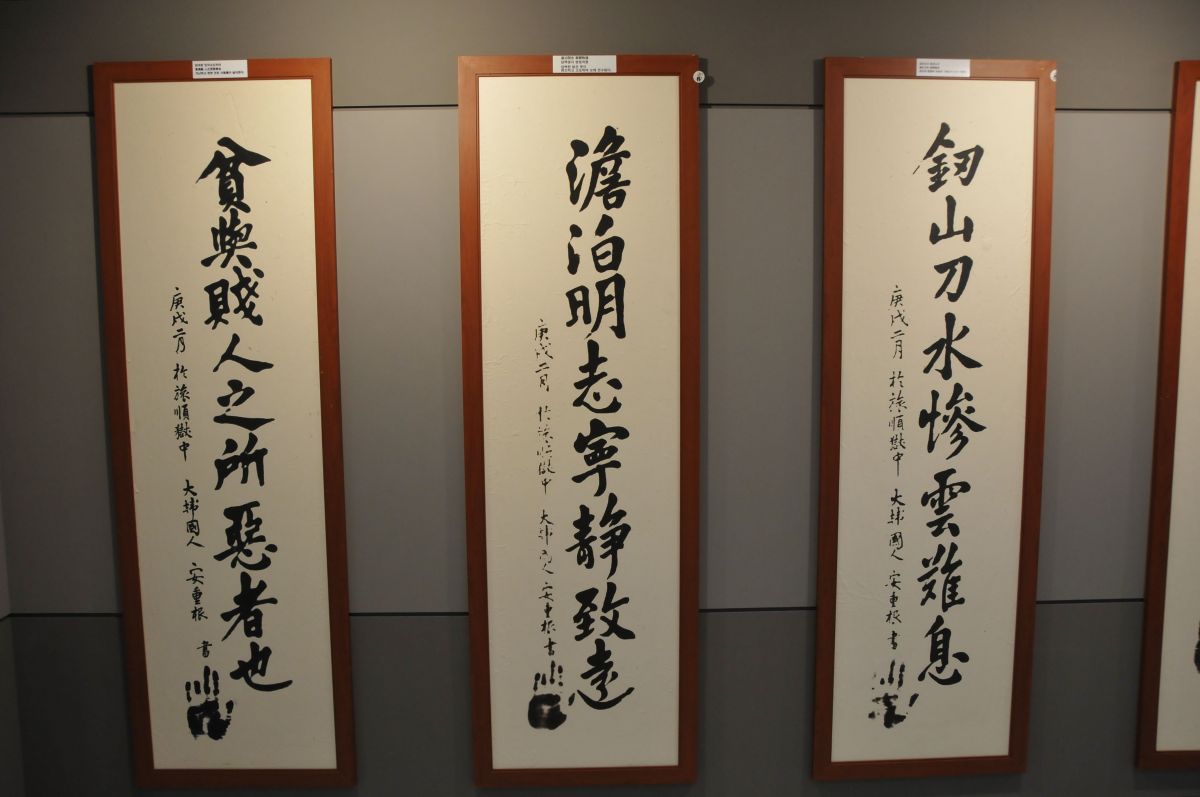 貧與賤人之所惡者也
庚戌二月 於旅順獄中 大韓國人 安重根 書
澹泊明志寧静致遠
庚戌二月 於旅順獄中 大韓國人 安重根 書
釼山刀水慘雲難息
庚戌二月 於旅順獄中 大韓國人 安重根 書